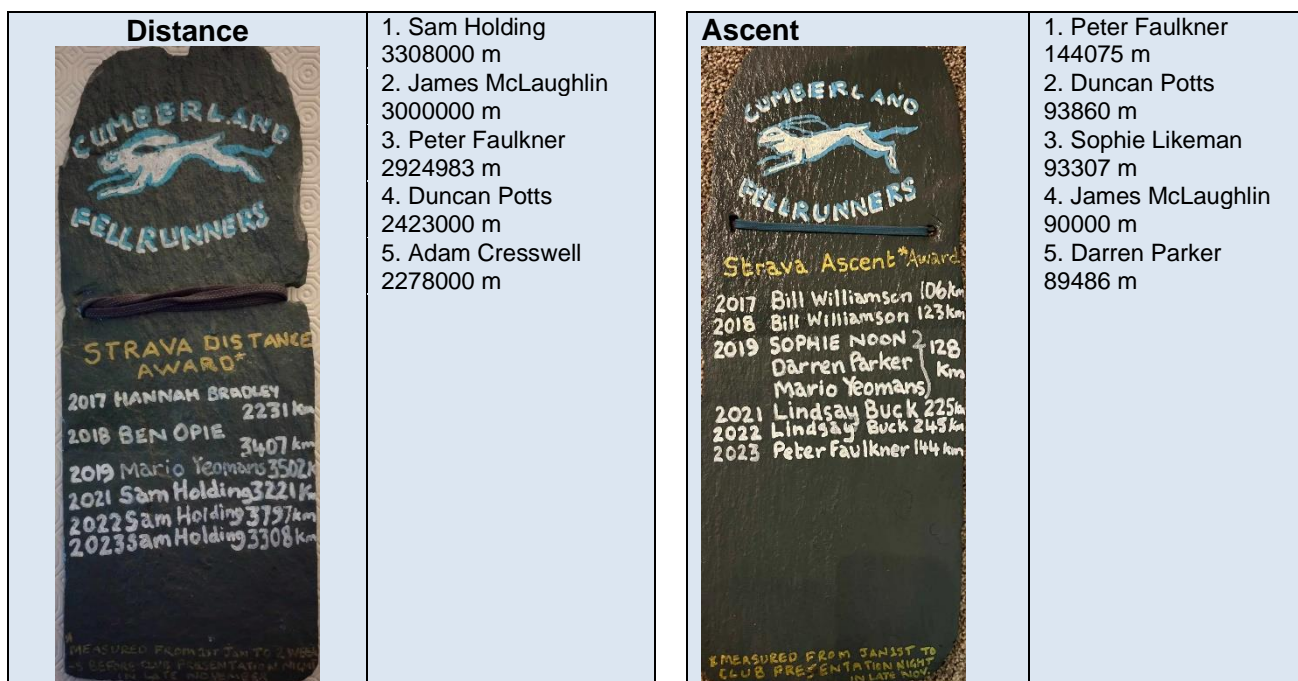 Distance
CUMBERLAND
FELLRUNNERS
STRAVA DISTANCE
AWARD*
2017 HANNAH BRADLEY
2231km
2018 BEN OPIE
3407 km
2019 Mario Yeomans 3502K
2021 Sam Holding 3221 K
2022 Sam Holding 3797km
2023 Sam Holding 3308 Km
*
MEASURED FROM 1ST JAN TO 2 WEEK
S BEFORE CLUB PRESENTATION NIGHT
IN LATE NOVEMBER
1. Sam Holding
3308000 m
2. James McLaughlin
3000000 m
3. Peter Faulkner
2924983 m
4. Duncan Potts
2423000 m
5. Adam Cresswell
2278000 m
Ascent
CUMBERLAND
FELLRUNNERS
Strava Ascent* Award
2017 Bill Williamson 106km
2018 Bill Williamson 123km
2019 SOPHIE NOON
Darren Parker 128
Mario Yeomans Km
2021 Lindsay Buck 225k
2022 Lindsay Buck 245km
2023 Peter Faulkner 144 km
* MEASURED FROM JAN 1ST TO
CLUB PRESENTATION NIGHT
IN LATE NOV.
1. Peter Faulkner
144075 m
2. Duncan Potts
93860 m
3. Sophie Likeman
93307 m
4. James McLaughlin
90000 m
5. Darren Parker
89486 m